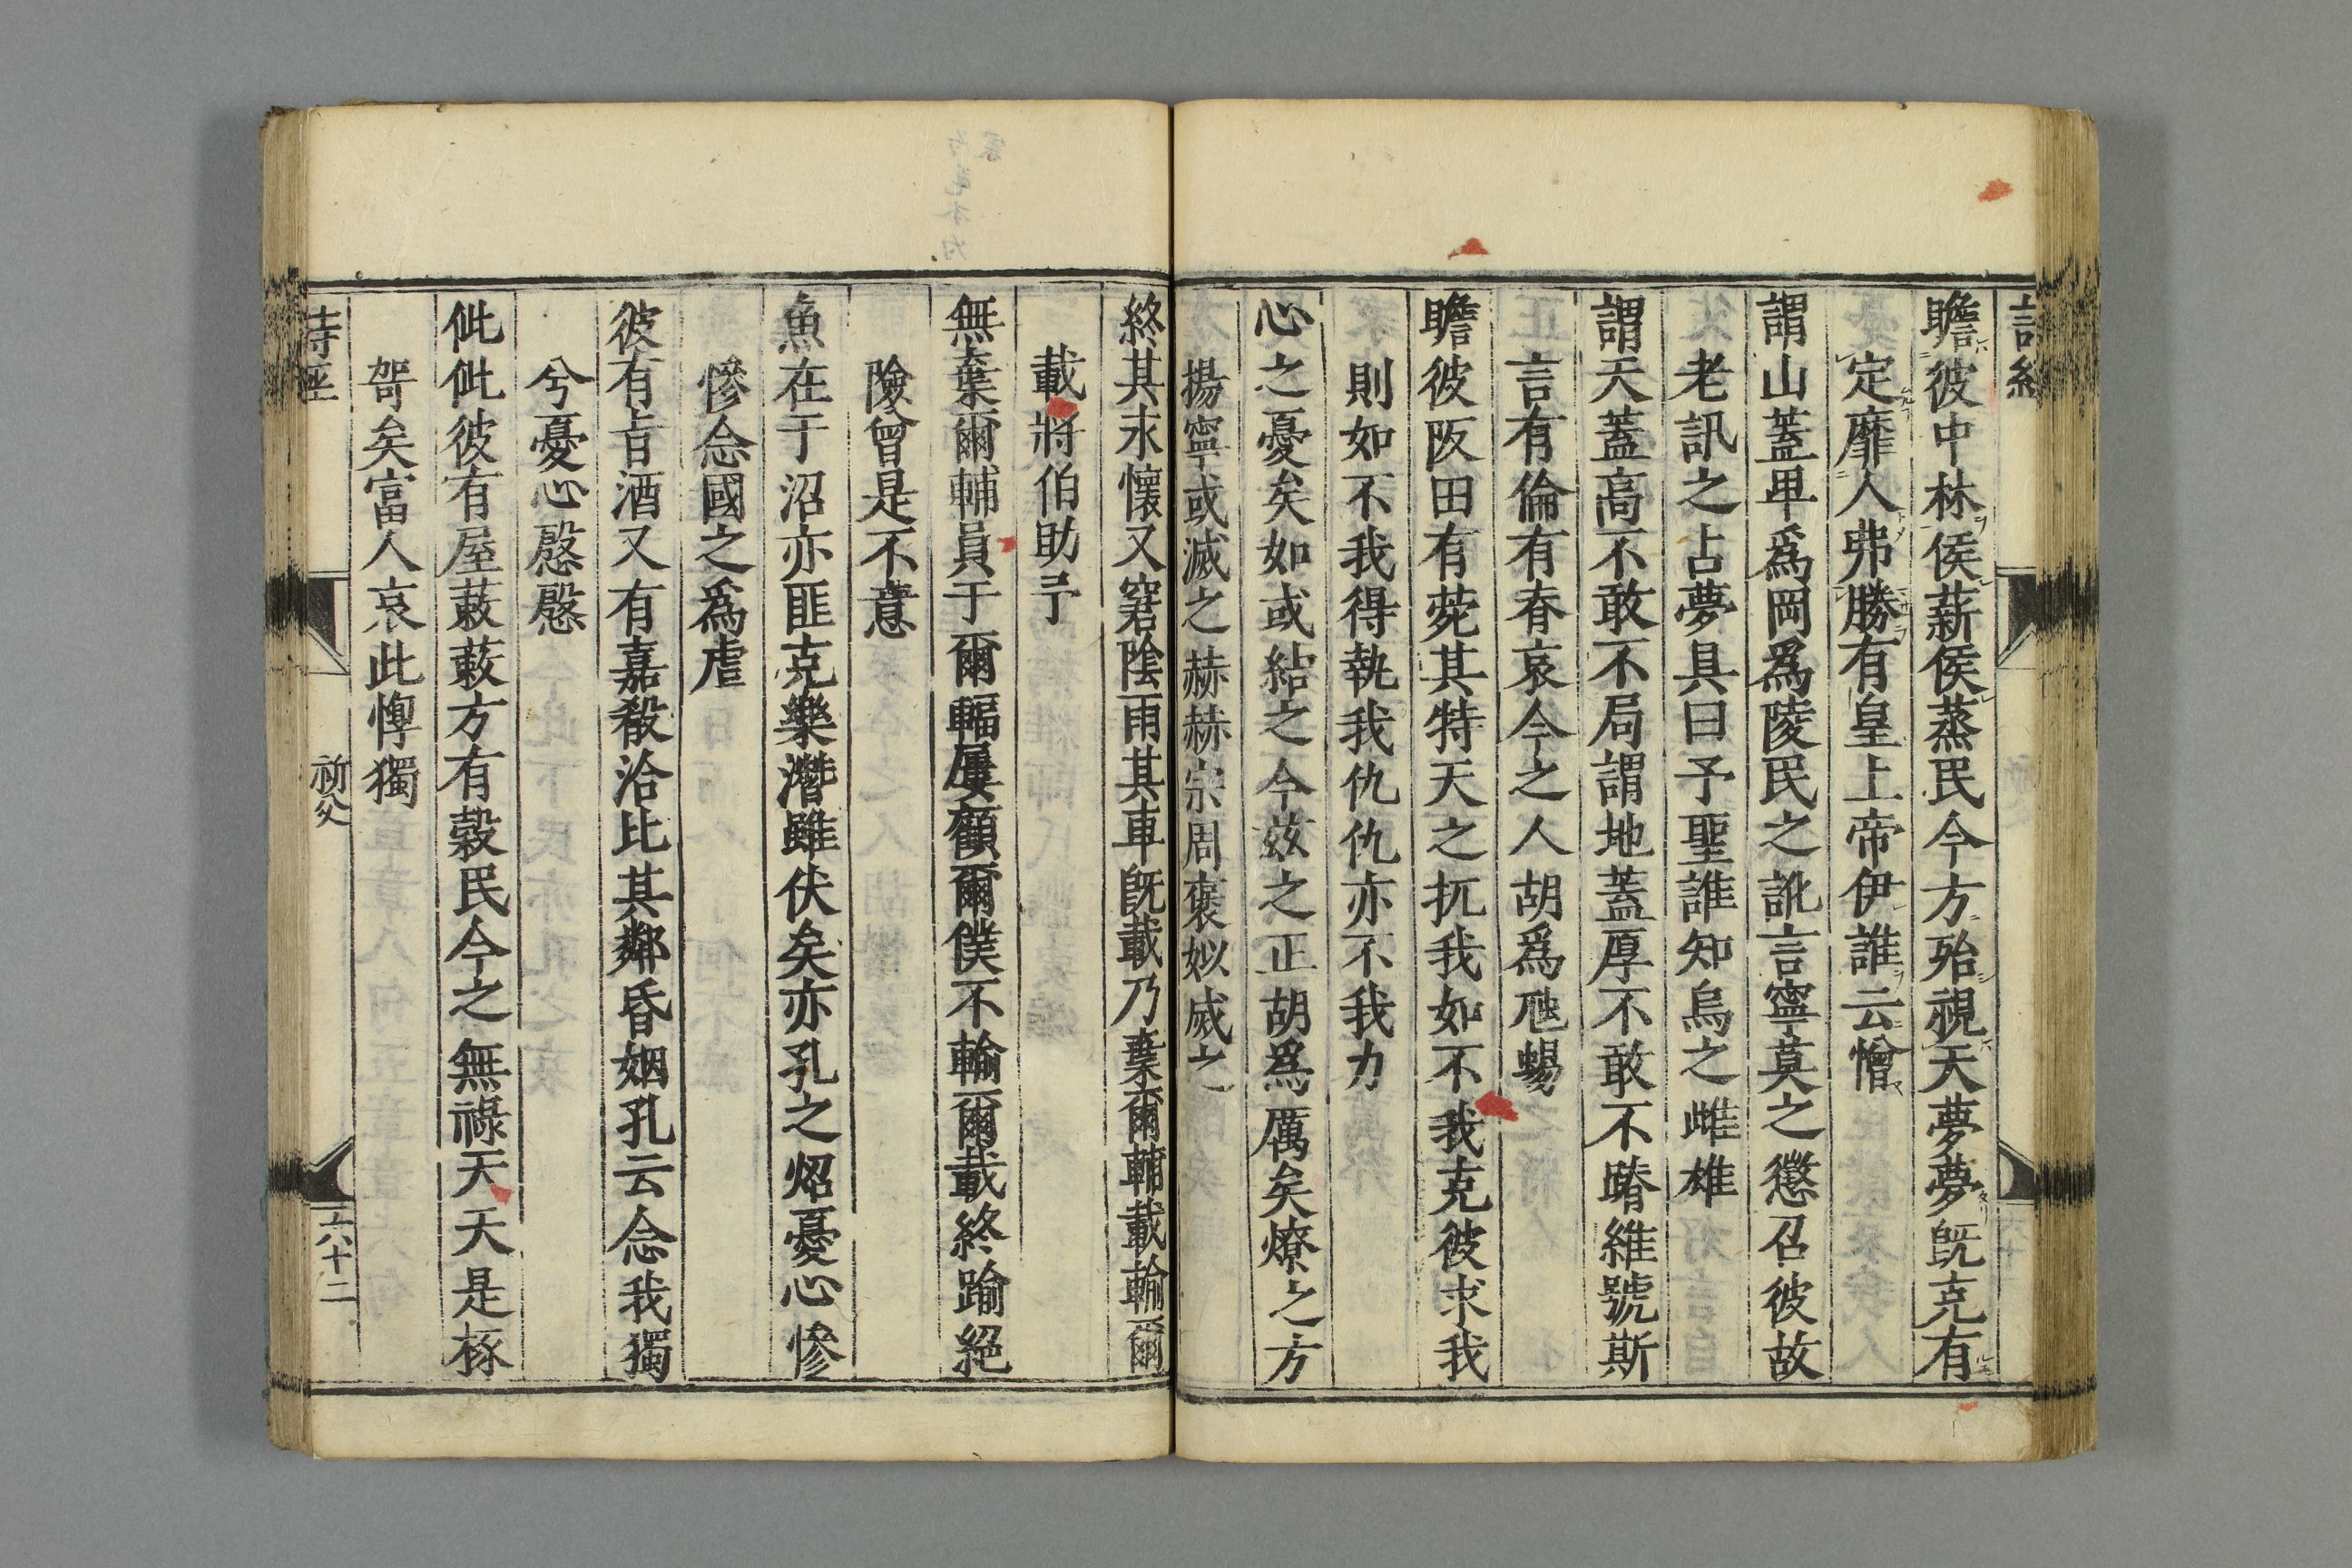 詩經
瞻彼中林侯薪侯蒸民今方殆視天夢夢旣克有
定靡人弗勝有皇上帝伊誰云憎
謂山蓋卑爲岡爲陵民之訛言寧莫之懲召彼故
老訊之占夢具曰予聖誰知烏之雌雄
謂天蓋高不敢不局謂地蓋厚不敢不蹐維號斯
言有倫有脊哀今之人胡爲虺蜴
瞻彼阪田有菀其特天之扤我如不我克彼求我
則如不我得執我仇仇亦不我力
心之憂矣如或結之今玆之正胡爲厲矣燎之方
揚寧或滅之赫赫宗周褒姒烕之
終其永懷又窘陰雨其車旣載乃棄爾輔載輸爾
載將伯助予
無棄爾輔員于爾輻屢顧爾僕不輸爾載終踰絕
險曾是不意
魚在于沼亦匪克樂潛雖伏矣亦孔之炤憂心慘
慘念國之爲虐
彼有旨酒又有嘉殽洽比其鄰昏姻孔云念我獨
兮憂心慇慇
佌佌彼有屋蔌蔌方有穀民今之無祿天天是椓
哿矣富人哀此惸獨
詩經
祈父
六十二